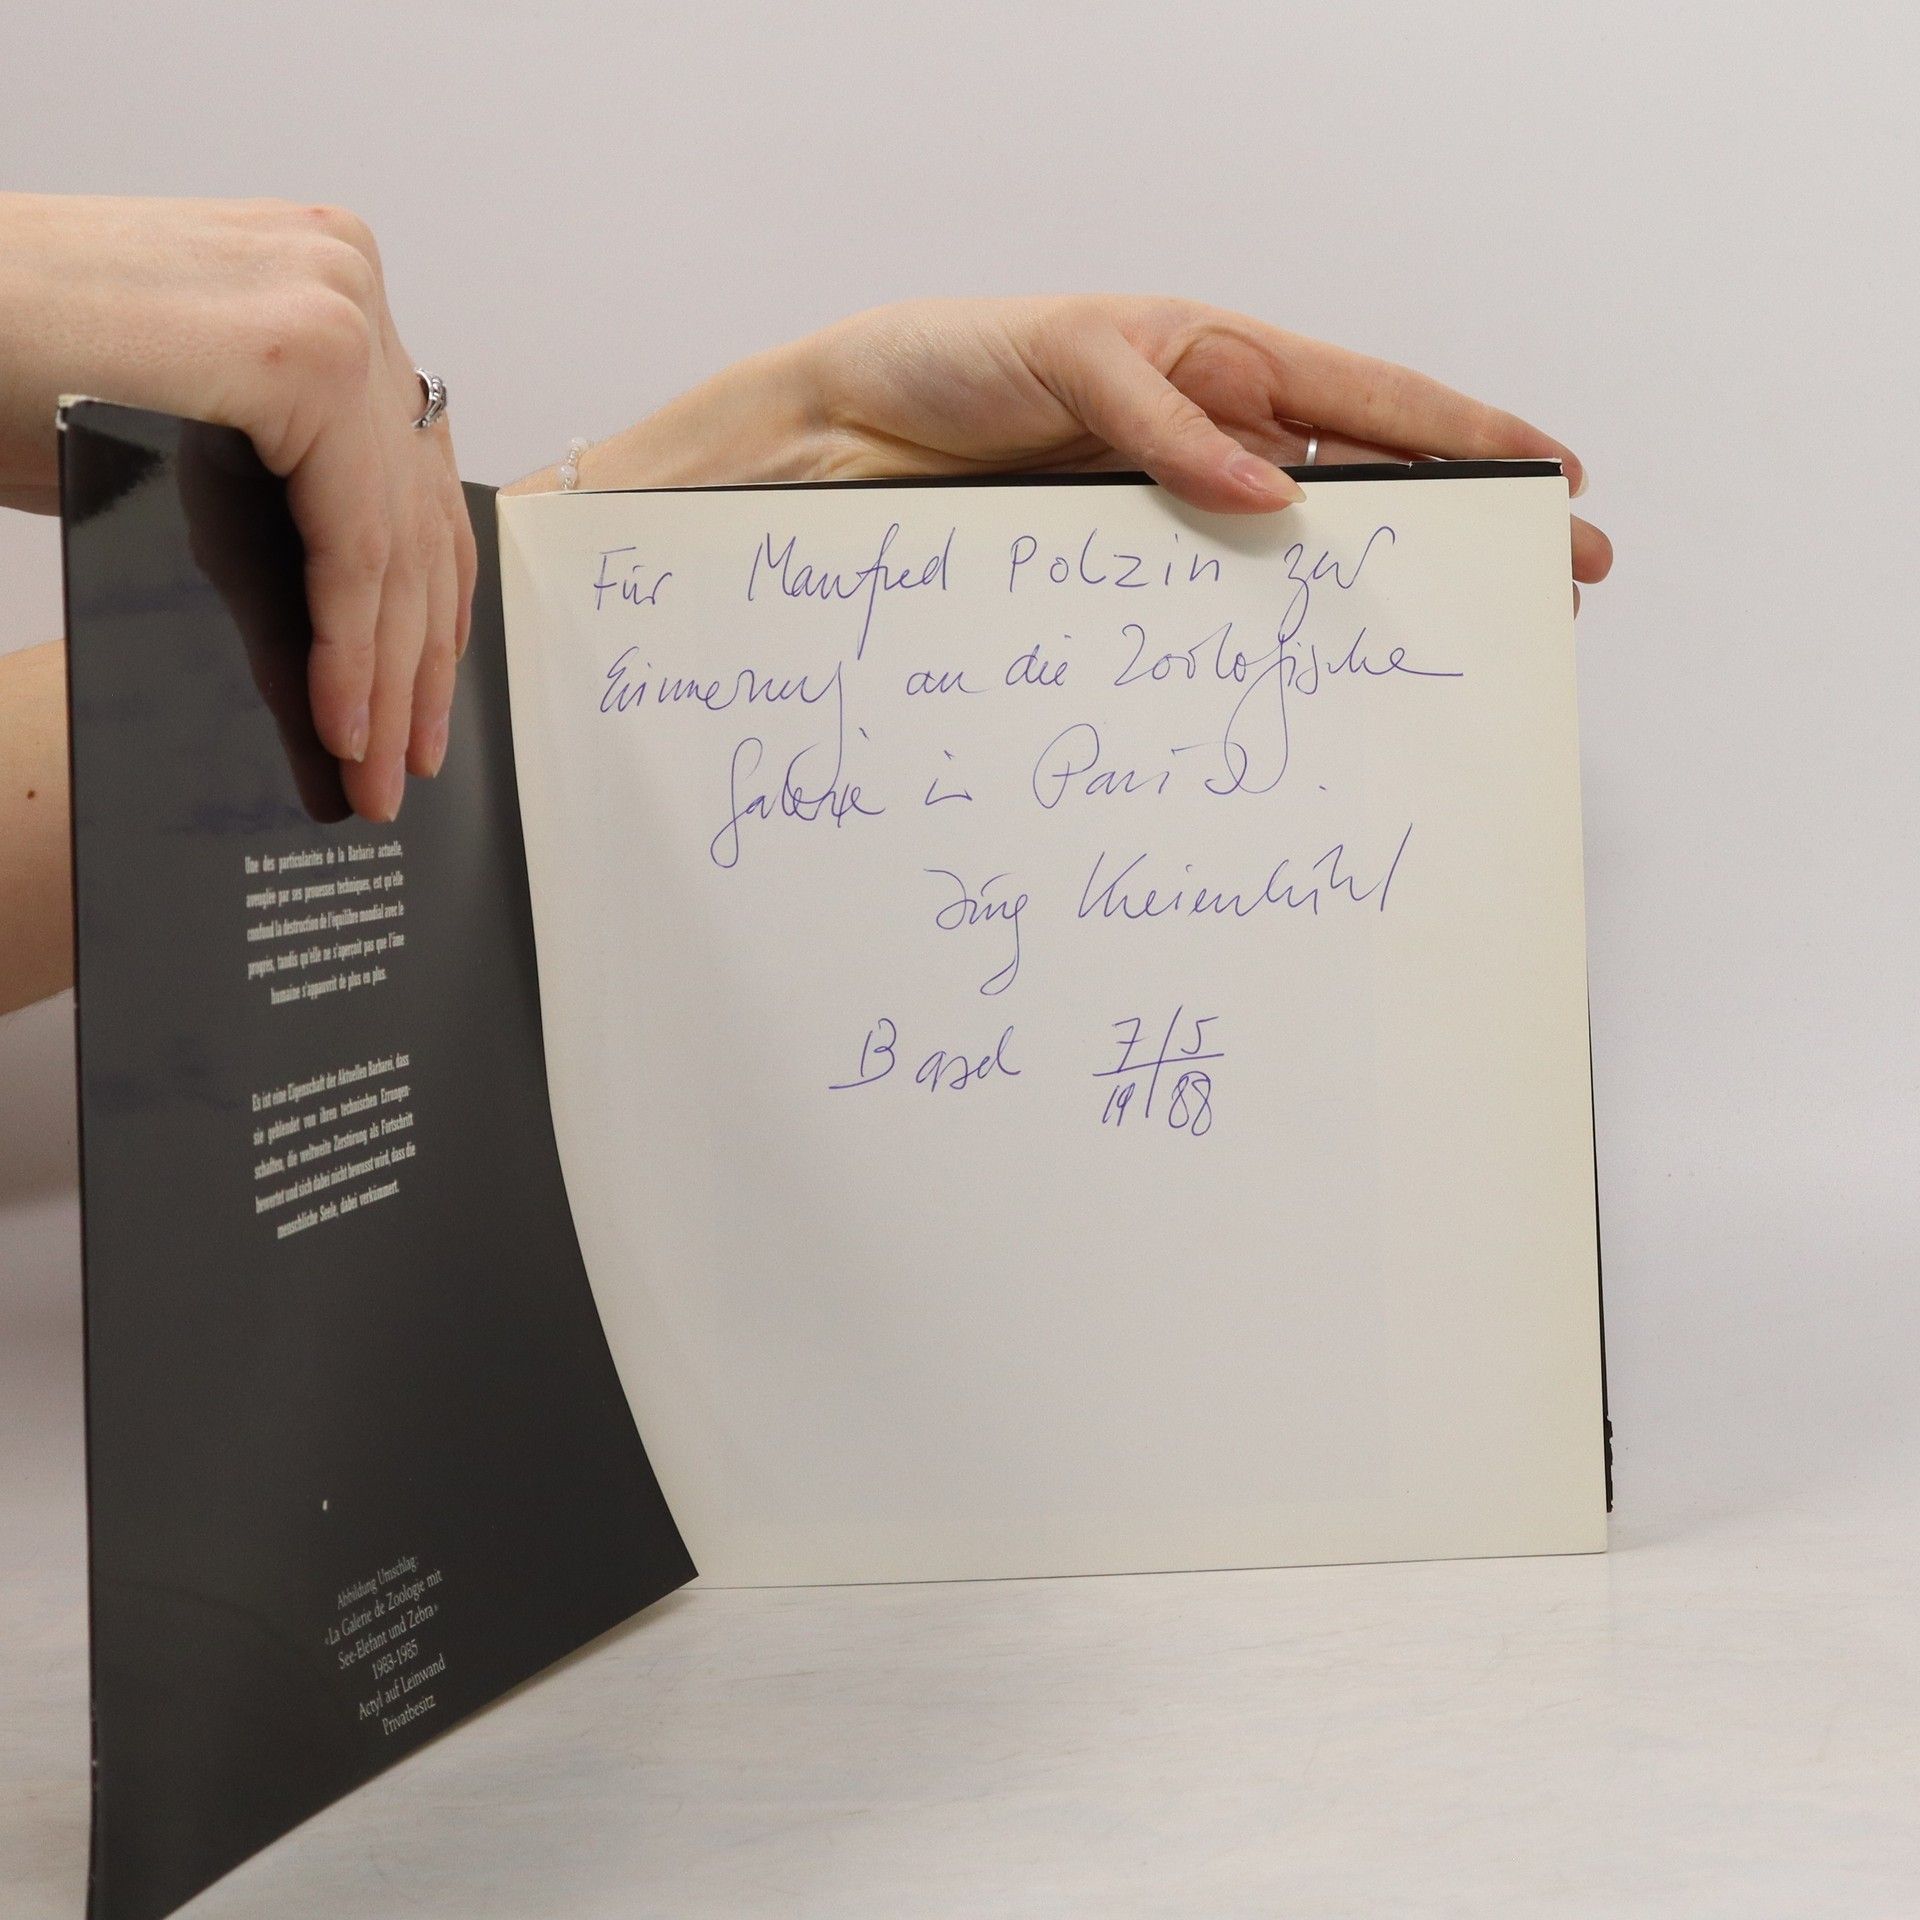 Une des particularités de la Barbarie actuelle,
aveuglée par ses prouesses techniques, est qu'elle
confond la destruction de l'équilibre mondial avec le
progrès, tandis qu'elle ne s'aperçoit pas que l'âme
humaine s'appauvrit de plus en plus.
Es ist eine Eigenschaft der Aktuellen Barbarei, dass
sie geblendet von ihren technischen Errungen-
schaften, die weltweite Zerstörung als Fortschritt
bewertet und sich dabei nicht bewusst wird, dass die
menschliche Seele, dabei verkümmert.
Abbildung Umschlag:
«La Galerie de Zoologie mit
See-Elefant und Zebra»
1983-1985
Acryl auf Leinwand
Privatbesitz
Für Manfred Polzin zur
Erinnerung an die Zoologische
Galerie in Paris
Jürg Kreienbühl
Basel 7/5
19/88